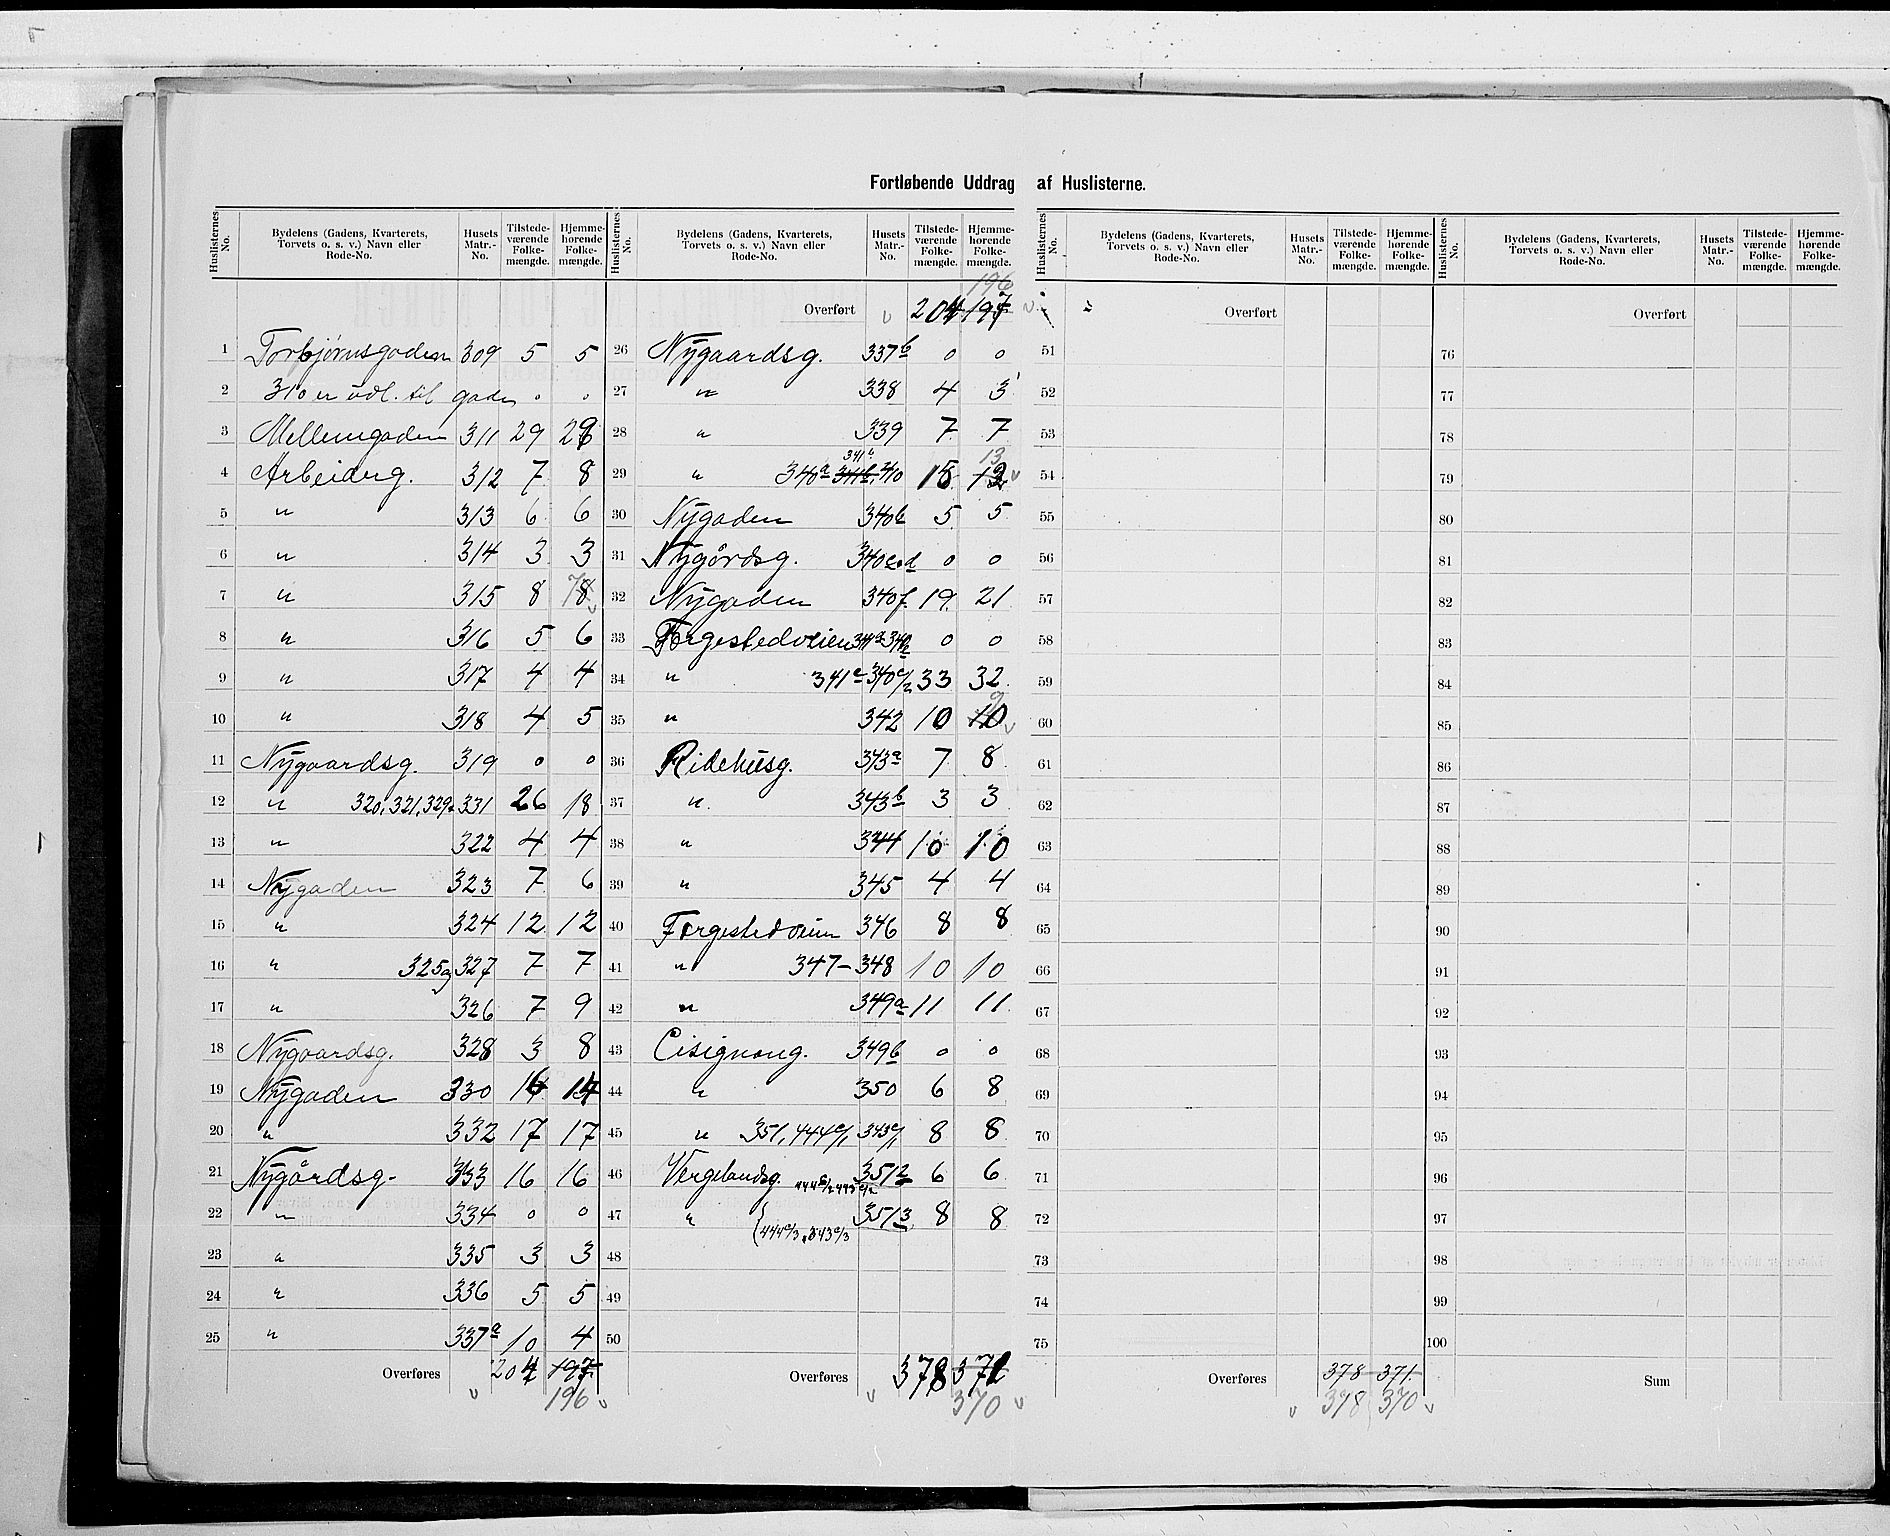 Fortløbende Uddrag af Huslisterne.
Huslisternes No. Bydelens (Gadens, Kvarterets, Torvets o. s. v.) Navn eller Rode-No. Husets Matr.-No. Tilstede-værende Folke-mængde. Hjemme-hørende Folke-mængde.
1 Torbjørnsgaden 309 5 5
2 310 er udl. til gade 0 0
3 Mellemgaden 311 29 28
4 Arbeiderg. 312 7 8
5 " 313 6 6
6 " 314 3 3
7 " 315 8 7 8
8 " 316 5 6
9 " 317 4 4
10 " 318 4 5
11 Nygaardsg. 319 0 0
12 " 320, 321, 329, 331 26 18
13 " 322 4 4
14 Nygaden 323 7 6
15 " 324 12 12
16 " 325 og 327 7 7
17 " 326 7 9
18 Nygaardsg. 328 3 8
19 Nygaden 330 14 14
20 " 332 17 17
21 Nygårdsg. 333 16 16
22 " 334 0 0
23 " 335 3 3
24 " 336 5 5
25 " 337a 10 4
Overføres 204 197
196
Huslisternes No. Bydelens (Gadens, Kvarterets, Torvets o. s. v.) Navn eller Rode-No. Husets Matr.-No. Tilstede-værende Folke-mængde. Hjemme-hørende Folke-mængde.
196
Overført 204 197
26 Nygaardsg. 337b 0 0
27 " 338 4 3
28 " 339 7 7
29 " 340a 341b 15 13
30 Nygaden 340b 5 5
31 Nygårdsg. 340c.d 0 0
32 Nygaden 340f. 19 21
33 Færgestedveien 0 0
34 " 341c 340e/2 33 32
35 " 342 10 9 10
36 Ridehusg. 343a 7 8
37 " 343b 3 3
38 " 344 10 10
39 " 345 4 4
40 Færgestedveien 346 8 8
41 " 347-348 10 10
42 " 349a 11 11
43 Cisignong. 349b 0 0
44 " 350 6 8
45 " 351, 444c/1, 343c/1 8 8
46 Vergelandsg. 351/2 6 6
47 " 351/3 8 8
(444c/3, 343c/3
48
49
50
Overføres 378 371
370
Huslisternes No. Bydelens (Gadens, Kvarterets, Torvets o. s. v.) Navn eller Rode-No. Husets Matr.-No. Tilstede-værende Folke-mængde. Hjemme-hørende Folke-mængde.
Overført
51
52
53
54
55
56
57
58
59
60
61
62
63
64
65
66
67
68
69
70
71
72
73
74
75
Overføres 378 371
378 370
Huslisternes No. Bydelens (Gadens, Kvarterets, Torvets o. s. v.) Navn eller Rode-No. Husets Matr.-No. Tilstede-værende Folke-mængde. Hjemme-hørende Folke-mængde.
Overført
76
77
78
79
80
81
82
83
84
85
86
87
88
89
90
91
92
93
94
95
96
97
98
99
100
Sum